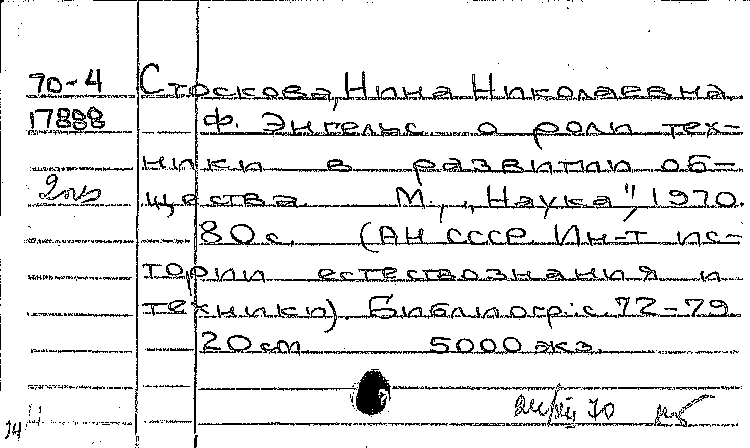 70-4 Стоскова, Нина Николаевна
17888 Ф. Энгельс о роли тех-
ники в развитии об-
2 щества М., „Наука", 1970.
80 с. (АН СССР. Ин-т ис-
тории естествознания и
техники). Библиогр.: с. 72-79.
20 см 5000 экз.
70
14